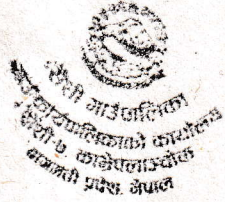 रोशी गाउँपालिका
गाउँ कार्यपालिकाको कार्यालय
काभ्रेपलाञ्चोक
बागमती प्रदेश, नेपाल